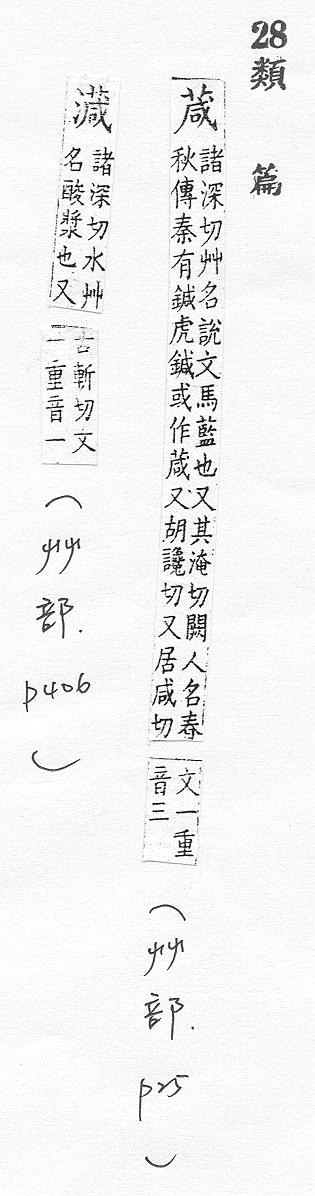 28類篇
葴
諸深切艸名說文馬藍也又其淹切闕人名春
秋傳秦有鍼虎鍼或作葴又胡讒切又居咸切
文一重
音三
(艸部. p25)
諸深切水艸
名酸漿也又
古斬切文
一重音一
(艸部. p406)